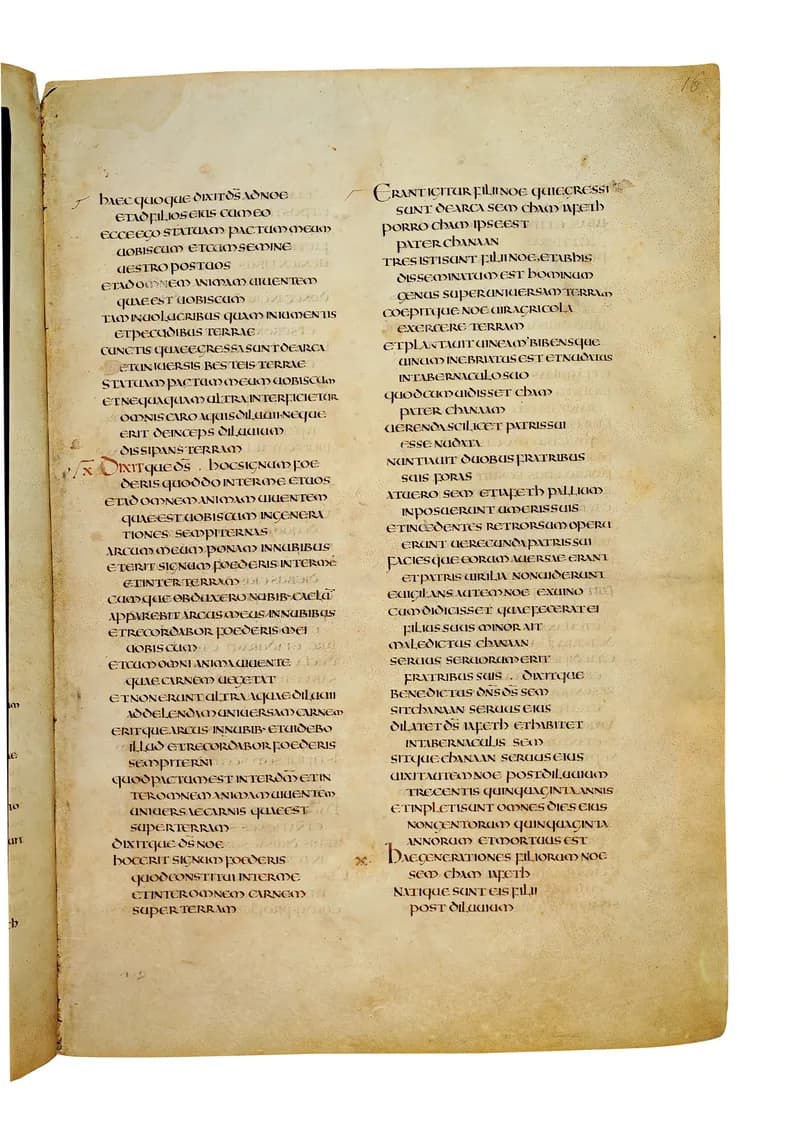 16
haec quoque dixit d̅s̅ ad noe
et ad filios eius cum eo
ecce ego statuam pactum meum
uobiscum et cum semine
uestro post uos
et ad omnem animam uiuentem
quae est uobiscum
tam in uolucribus quam in iumentis
et pecudibus terrae
cunctis quae egressa sunt de arca
et uniuersis besteis terrae
statuam pactum meum uobiscum
et nequaquam ultra interficietur
omnis caro aquis diluuii neque
erit deinceps diluuium
dissipans terram
x Dixitque d̅s̅ . hoc signum foe
deris quod do inter me et uos
et ad omnem animam uiuentem
quae est uobiscum in genera
tiones sempiternas
arcum meum ponam in nubibus
et erit signum foederis inter me
et inter terram
cumque obduxero nubib· caelū
apparebit arcus meus in nubibus
et recordabor foederis mei
uobiscum
et cum omni anima uiuente
quae carnem uegetat
et non erunt ultra aquae diluuii
ad delendam uniuersam carnem
eritque arcus in nubib· et uidebo
illud et recordabor foederis
sempiterni
quod pactum est inter d̅m̅ et in
ter omnem animam uiuentem
uniuersae carnis quae est
super terram
dixitque d̅s̅ noe
hoc erit signum foederis
quod constitui inter me
et inter omnem carnem
super terram
Erant igitur filii noe qui egressi
sunt de arca sem cham iafeth
porro cham ipse est
pater chanaan
tres isti sunt filii noe. et ab his
disseminatum est hominum
genus super uniuersam terram
coepitque noe uir agricola
exercere terram
et plantauit uineam bibensque
uinum inebriatus est et nudatus
in tabernaculo suo
quod cum uidisset cham
pater chanaam
uerenda scilicet patris sui
esse nudata
nuntiauit duobus fratribus
suis foras
at uero sem et iafeth pallium
inposuerunt umeris suis
et incedentes retrorsum operu
erunt uerecunda patris sui
faciesque eorum auersae erant
et patris uirilia non uiderunt
euigilans autem noe ex uino
cum didicisset quae fecerat ei
filius suus minor ait
maledictus chanaan
seruus seruorum erit
fratribus suis . dixitque
benedictus d̅n̅s̅ d̅s̅ sem
sit chanaan seruus eius
dilatet d̅s̅ iafeth et habitet
in tabernaculis sem
sitque chanaan seruus eius
uixit autem noe post diluuium
trecentis quinquaginta annis
et inpleti sunt omnes dies eius
nongentorum quinquaginta
annorum et mortuus est
x· Hae generationes filiorum noe
sem cham iafeth
natique sunt eis filii
post diluuium